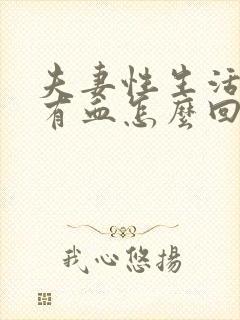 夫妻性生活
有血怎麼回
我心悠揚